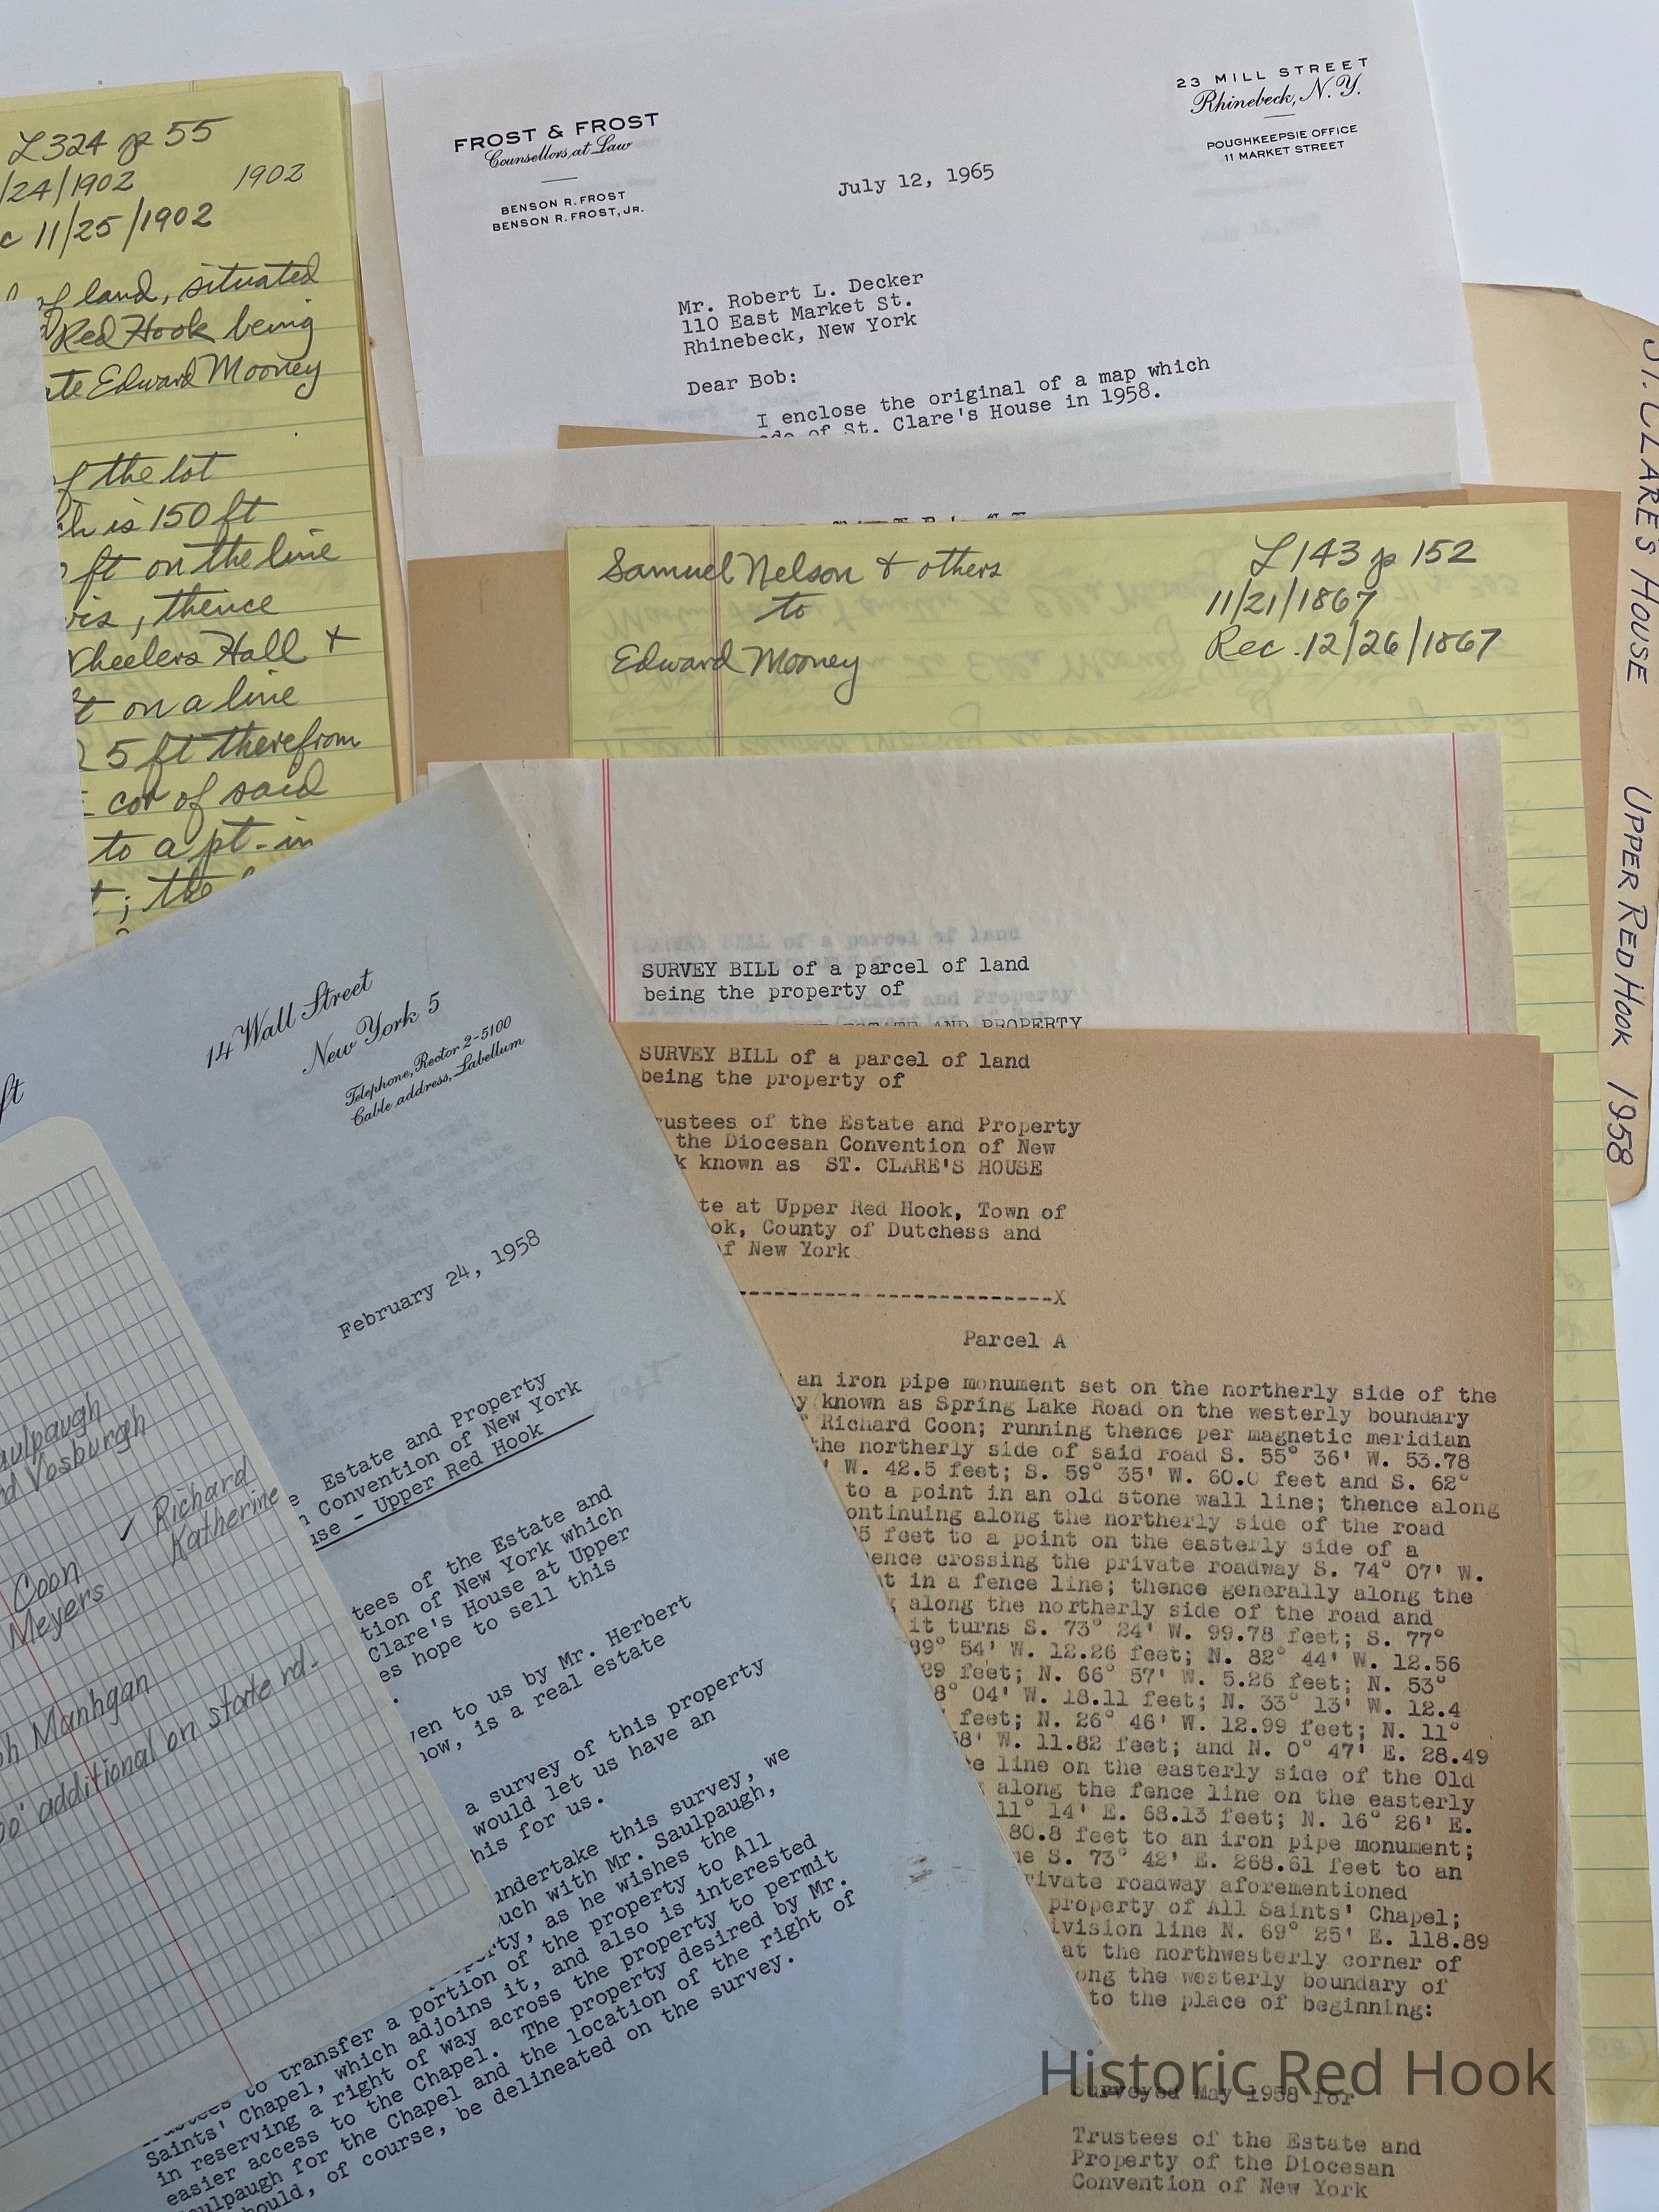 L324 p 55
/24/1902 1902
c 11/25/1902
of land, situated
Red Hook being
te Edward Mooney
of the lot
ch is 150 ft
ft on the line
vis, thence
heelers Hall +
t on a line
5 ft therefrom
cor of said
to a pt. in
t; the
FROST & FROST
Counsellors at Law
BENSON R. FROST
BENSON R. FROST, JR.
23 MILL STREET
Rhinebeck, N.Y.
POUGHKEEPSIE OFFICE
11 MARKET STREET
July 12, 1965
Mr. Robert L. Decker
110 East Market St.
Rhinebeck, New York
Dear Bob:
I enclose the original of a map which
of St. Clare's House in 1958.
ST. CLARE'S HOUSE UPPER RED HOOK 1958
Samuel Nelson & others
to
Edward Mooney
L143 p 152
11/21/1867
Rec. 12/26/1867
SURVEY BILL of a parcel of land
being the property of
ESTATE AND PROPERTY
SURVEY BILL of a parcel of land
being the property of
rustees of the Estate and Property
the Diocesan Convention of New
k known as ST. CLARE'S HOUSE
te at Upper Red Hook, Town of
ook, County of Dutchess and
f New York
---------------------------X
Parcel A
an iron pipe monument set on the northerly side of the
y known as Spring Lake Road on the westerly boundary
f Richard Coon; running thence per magnetic meridian
the northerly side of said road S. 55° 36' W. 53.78
' W. 42.5 feet; S. 59° 35' W. 60.0 feet and S. 62°
to a point in an old stone wall line; thence along
ontinuing along the northerly side of the road
5 feet to a point on the easterly side of a
ence crossing the private roadway S. 74° 07' W.
t in a fence line; thence generally along the
along the northerly side of the road and
it turns S. 73° 24' W. 99.78 feet; S. 77°
89° 54' W. 12.26 feet; N. 82° 44' W. 12.56
29 feet; N. 66° 57' W. 5.26 feet; N. 53°
8° 04' W. 18.11 feet; N. 33° 13' W. 12.4
feet; N. 26° 46' W. 12.99 feet; N. 11°
58' W. 11.82 feet; and N. 0° 47' E. 28.49
e line on the easterly side of the Old
along the fence line on the easterly
11° 14' E. 68.13 feet; N. 16° 26' E.
80.8 feet to an iron pipe monument;
ne S. 73° 42' E. 268.61 feet to an
rivate roadway aforementioned
property of All Saints' Chapel;
ivision line N. 69° 25' E. 118.89
at the northwesterly corner of
ong the westerly boundary of
to the place of beginning:
Surveyed May 1958 for
Trustees of the Estate and
Property of the Diocesan
Convention of New York
14 Wall Street
New York 5
Telephone, Rector 2-5100
Cable address, Labellum
ft
February 24, 1958
e Estate and Property
n Convention of New York
use - Upper Red Hook
tees of the Estate and
tion of New York which
Clare's House at Upper
es hope to sell this
ven to us by Mr. Herbert
now, is a real estate
a survey of this property
would let us have an
his for us.
undertake this survey, we
uch with Mr. Saulpaugh,
rty, as he wishes the
to transfer a portion of the property to All
Saints' Chapel, which adjoins it, and also is interested
in reserving a right of way across the property to permit
easier access to the Chapel. The property desired by Mr.
aulpaugh for the Chapel and the location of the right of
hould, of course, be delineated on the survey.
aulpaugh
d Vosburgh
✓ Richard
Katherine
Coon
Meyers
ph Manhgan
00' additional on state rd.
Historic Red Hook